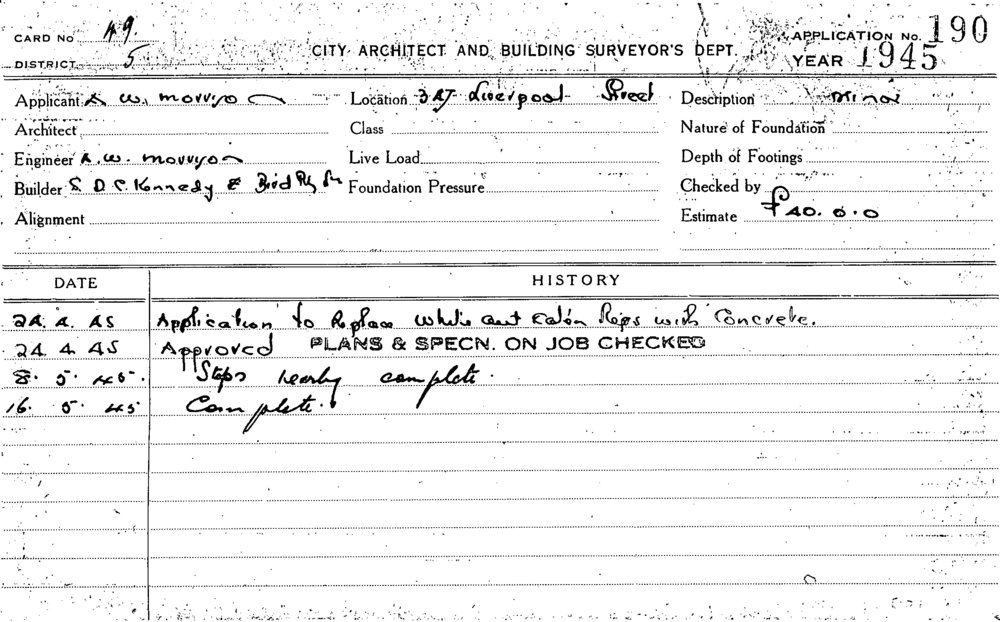 CARD No 49.
DISTRICT 5
CITY ARCHITECT AND BUILDING SURVEYOR'S DEPT.
APPLICATION No. 190
YEAR 1945
Applicant A W. Morrison
Location Liverpool Street
Description Minor
Architect
Class
Nature of Foundation
Engineer A. W. Morrison
Live Load
Depth of Footings
Builder S. D. C. Kennedy & Bird Pty
Foundation Pressure
Checked by
Alignment
Estimate £40. 0. 0
DATE HISTORY
24. 4. 45 Application to Replace White ant Eaten Steps with Concrete.
24 4 45 Approved PLANS & SPECN. ON JOB CHECKED
8. 5. 45. Steps nearby complete.
16. 5. 45 Complete.